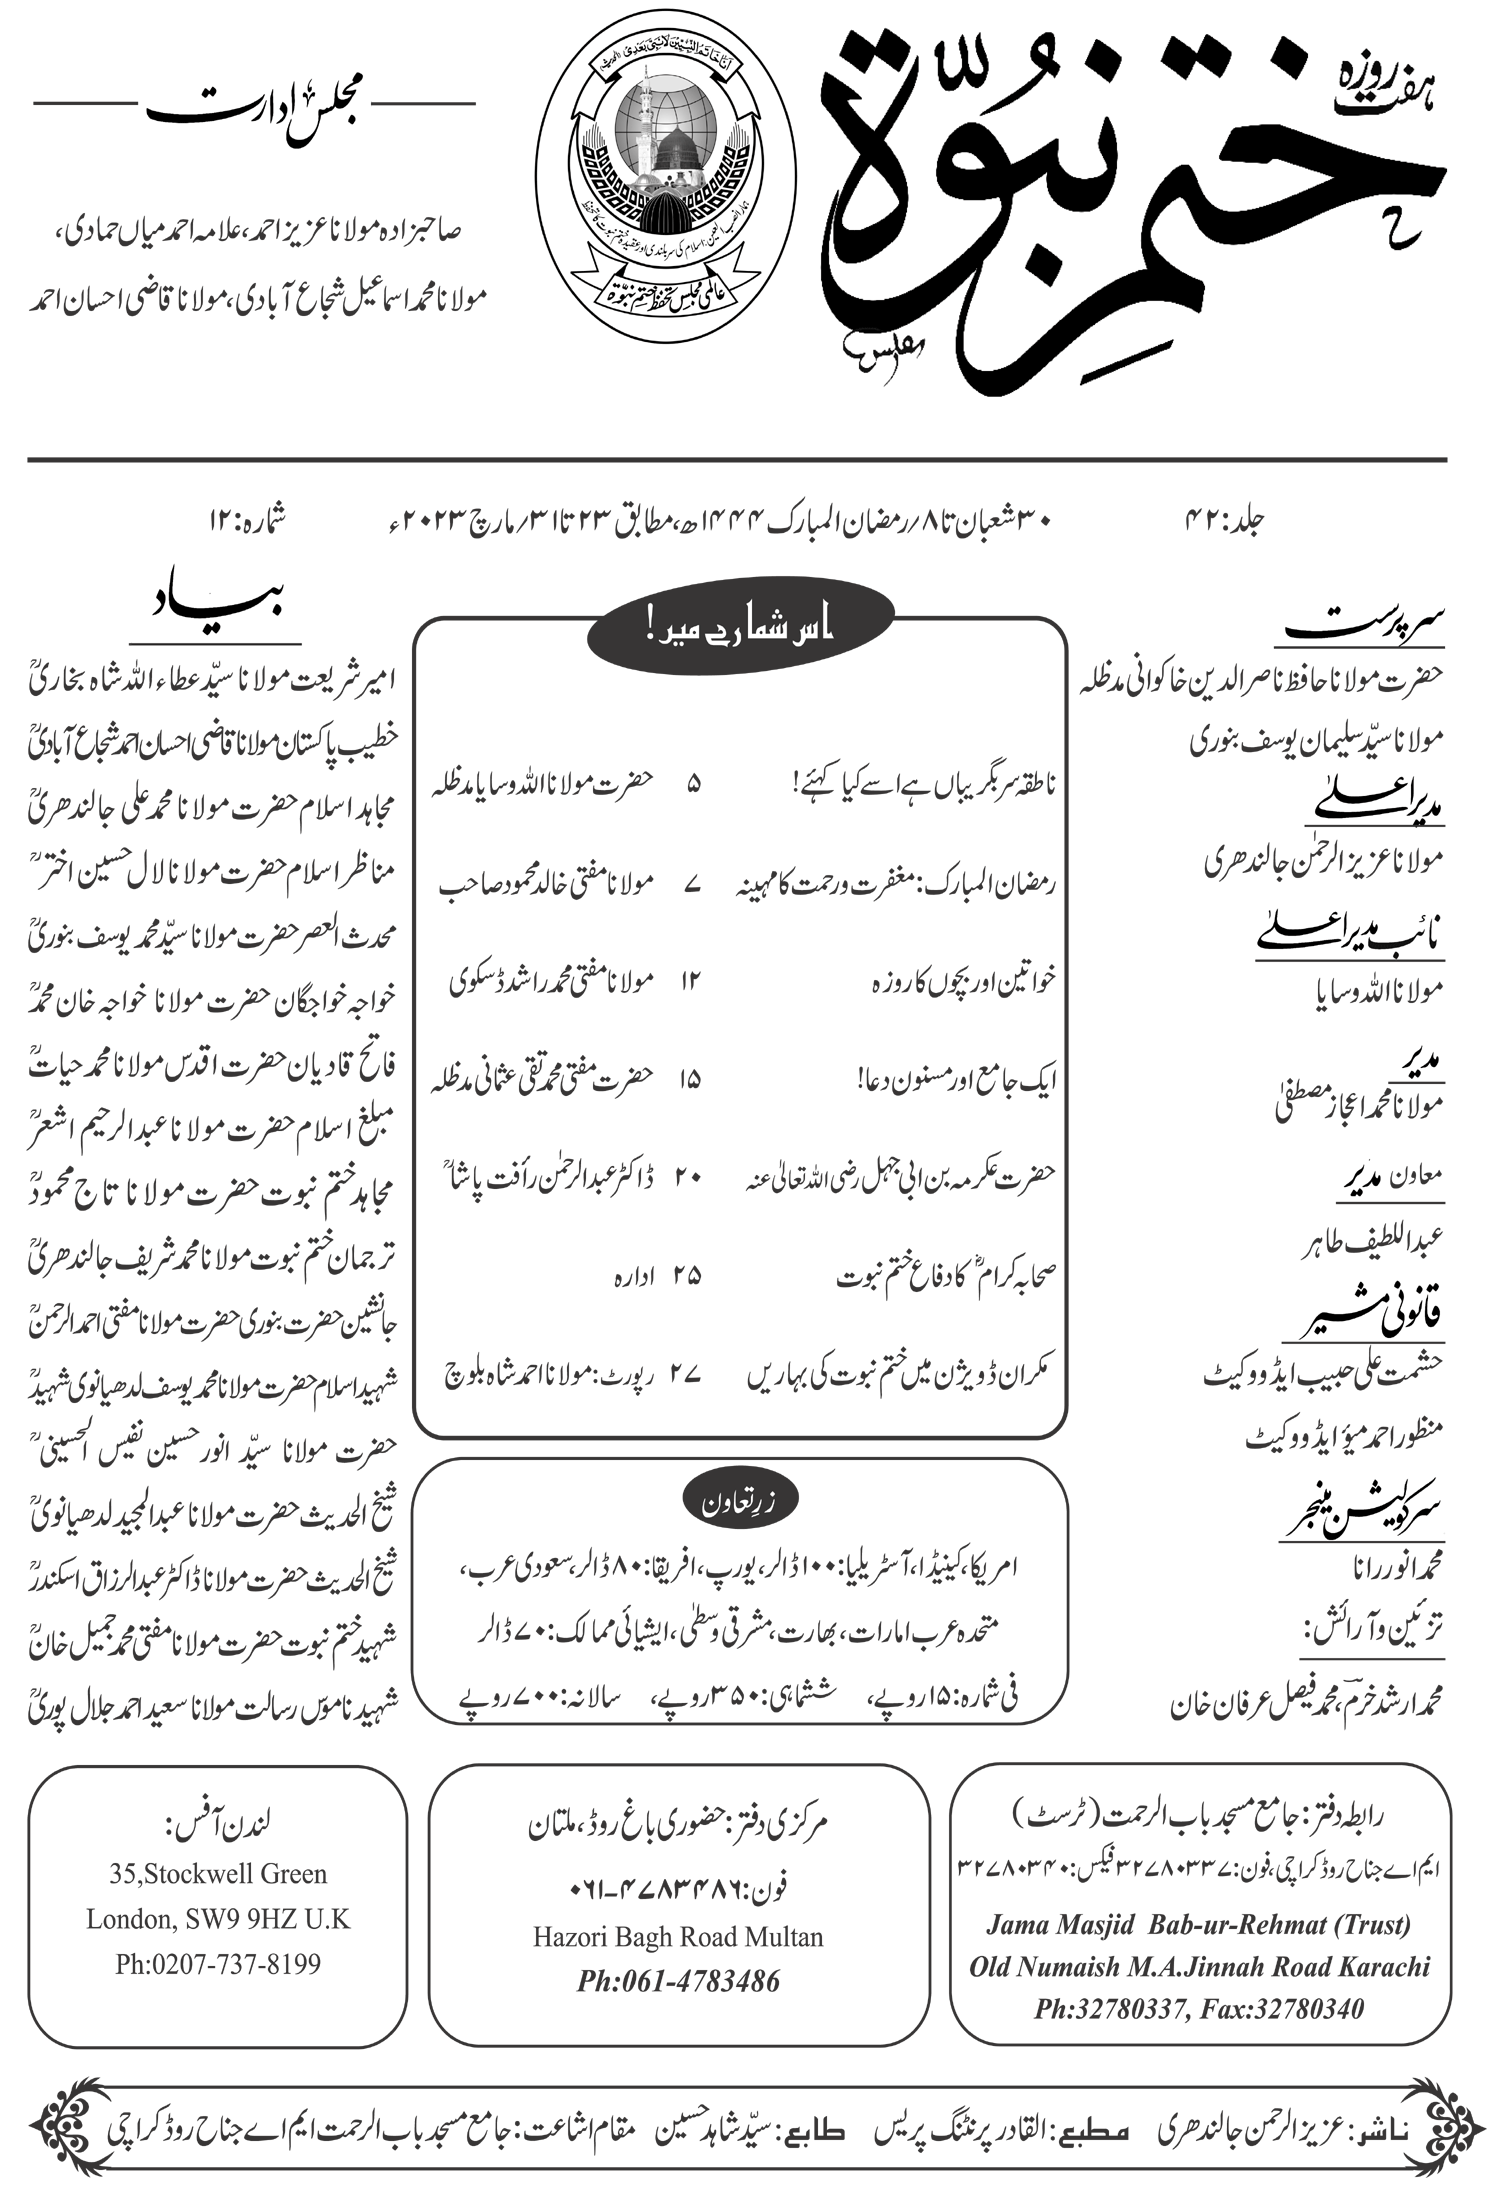 ہفت روزہ
ختم نبوۃ
انا خاتم النبیین لا نبی بعدی
عالمی مجلس تحفظ ختم نبوۃ
مجلس ادارت
صاحبزادہ مولانا عزیز احمد، علامہ احمد میاں حمادی،
مولانا محمد اسماعیل شجاع آبادی، مولانا قاضی احسان احمد
جلد: ۴۲
۳۰ شعبان تا ۸ / رمضان المبارک ۱۴۴۴ھ، مطابق ۲۳ تا ۳۱ / مارچ ۲۰۲۳ء
شمارہ: ۱۲
سرپرست
حضرت مولانا حافظ ناصر الدین خاکوانی مدظلہ
مولانا سیّد سلیمان یوسف بنوری
مدیر اعلیٰ
مولانا عزیز الرحمٰن جالندھری
نائب مدیر اعلیٰ
مولانا اللہ وسایا
مدیر
مولانا محمد اعجاز مصطفیٰ
معاون مدیر
عبداللطیف طاہر
قانونی مشیر
حشمت علی حبیب ایڈووکیٹ
منظور احمد میؤ ایڈووکیٹ
سرکولیشن مینجر
محمد انور رانا
تزئین و آرائش:
محمد ارشد خرم، محمد فیصل عرفان خان
اس شمارے میں!
ناطقہ سر بگریباں ہے اسے کیا کہئے! ۵ حضرت مولانا اللہ وسایا مدظلہ
رمضان المبارک: مغفرت و رحمت کا مہینہ ۷ مولانا مفتی خالد محمود صاحب
خواتین اور بچوں کا روزہ ۱۲ مولانا مفتی محمد راشد ڈسکوی
ایک جامع اور مسنون دعا! ۱۵ حضرت مفتی محمد تقی عثمانی مدظلہ
حضرت عکرمہ بن ابی جہل رضی اللہ تعالیٰ عنہ ۲۰ ڈاکٹر عبدالرحمٰن رأفت پاشاؒ
صحابہ کرامؓ کا دفاع ختم نبوت ۲۵ ادارہ
مکران ڈویژن میں ختم نبوت کی بہاریں ۲۷ رپورٹ: مولانا احمد شاہ بلوچ
زرِ تعاون
امریکا، کینیڈا، آسٹریلیا: ۱۰۰ ڈالر، یورپ، افریقا: ۸۰ ڈالر، سعودی عرب،
متحدہ عرب امارات، بھارت، مشرقِ وسطیٰ، ایشیائی ممالک: ۷۰ ڈالر
فی شمارہ: ۱۵ روپے، ششماہی: ۳۵۰ روپے، سالانہ: ۷۰۰ روپے
بیاد
امیر شریعت مولانا سیّد عطاء اللہ شاہ بخاریؒ
خطیب پاکستان مولانا قاضی احسان احمد شجاع آبادیؒ
مجاہد اسلام حضرت مولانا محمد علی جالندھریؒ
مناظر اسلام حضرت مولانا لال حسین اخترؒ
محدث العصر حضرت مولانا سیّد محمد یوسف بنوریؒ
خواجہ خواجگان حضرت مولانا خواجہ خان محمدؒ
فاتح قادیان حضرت اقدس مولانا محمد حیاتؒ
مبلغ اسلام حضرت مولانا عبدالرحیم اشعرؒ
مجاہد ختم نبوت حضرت مولانا تاج محمودؒ
ترجمان ختم نبوت مولانا محمد شریف جالندھریؒ
جانشین حضرت بنوری حضرت مولانا مفتی احمد الرحمٰنؒ
شہید اسلام حضرت مولانا محمد یوسف لدھیانوی شہیدؒ
حضرت مولانا سیّد انور حسین نفیس الحسینیؒ
شیخ الحدیث حضرت مولانا عبدالمجید لدھیانویؒ
شیخ الحدیث حضرت مولانا ڈاکٹر عبدالرزاق اسکندرؒ
شہید ختم نبوت حضرت مولانا مفتی محمد جمیل خانؒ
شہید ناموس رسالت مولانا سعید احمد جلال پوریؒ
رابطہ دفتر: جامع مسجد باب الرحمت (ٹرسٹ)
ایم اے جناح روڈ کراچی، فون: ۳۲۷۸۰۳۳۷ فیکس: ۳۲۷۸۰۳۴۰
Jama Masjid Bab-ur-Rehmat (Trust)
Old Numaish M.A.Jinnah Road Karachi
Ph:32780337, Fax:32780340
مرکزی دفتر: حضوری باغ روڈ، ملتان
فون: ۰۶۱-۴۷۸۳۴۸۶
Hazori Bagh Road Multan
Ph:061-4783486
لندن آفس:
35,Stockwell Green
London, SW9 9HZ U.K
Ph:0207-737-8199
ناشر: عزیز الرحمٰن جالندھری مطبع: القادر پرنٹنگ پریس طابع: سیّد شاہد حسین مقام اشاعت: جامع مسجد باب الرحمت ایم اے جناح روڈ کراچی